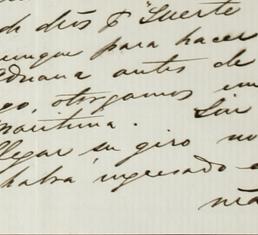 de dios p. "Suerte
aunque para hacer
Aduana antes de
go, otorgamos un
maritima. Sin
llegar su giro no
habra ingresado e